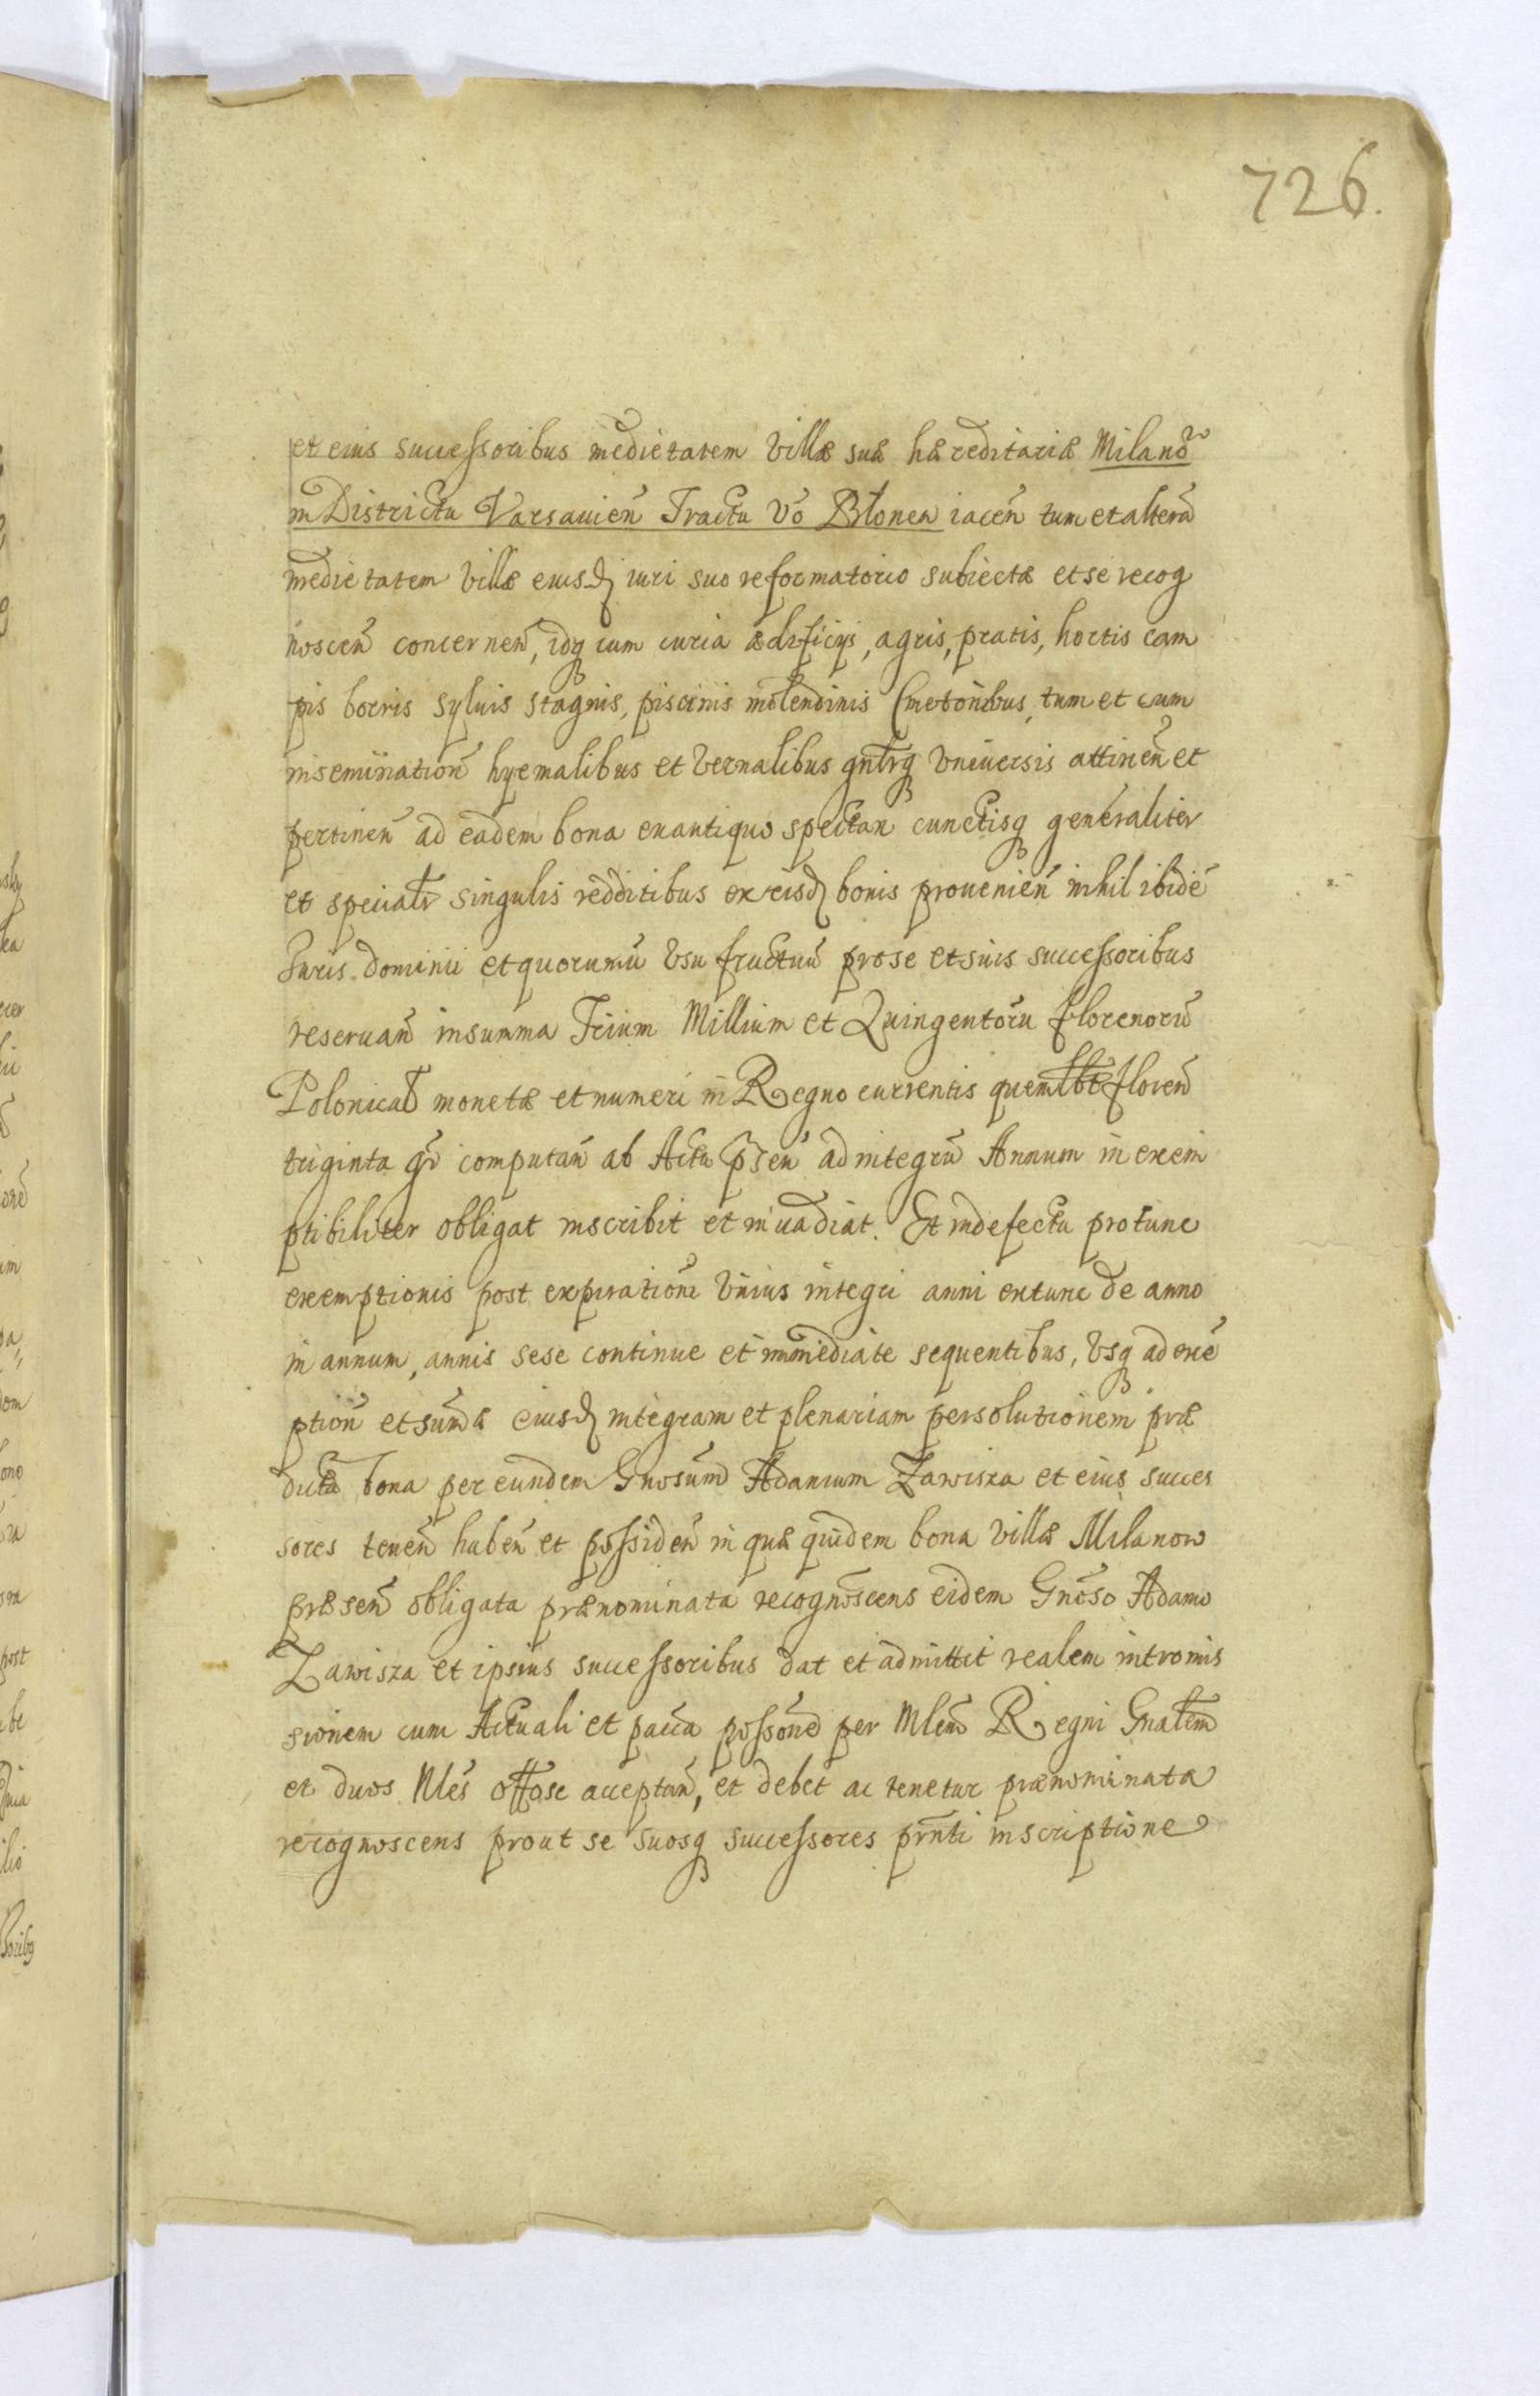 726.
et eius successoribus medietatem Villæ suæ hæreditariæ Milanow
in Districtu Varsavień Tractu Vō Błoneń iaceń tum et alterā
medietatem Villæ eiusd iuri suo reformatorio subiectæ et se recog
nosceń concerneń, idq cum curia ædificijs, agris, pratis, hortis cam
pis borris syluis stagnis, piscinis molendinis Cmetonibus, tum et cum
inseminationi hyemalibus et Vernalibus gnlrq Vniuersis attineń et
pertineń ad eadem bona exantiquo spectań cunctisq generaliter
et specialr singulis redditibus ex eisd bonis prouenień nihil ibidē
Iuris dominii et quorumū Vsu fructuū pro se et suis successoribus
reseruań in summa Trium Millium et Quingentorū florenorū
Polonical monetæ et numeri in Regno currentis quemlbt floreń
triginta gr computań ab Actu pseń ad integrū Annum in exem
ptibiliter obligat inscribit et inuadiat. Et in defectu pro tunc
exemptionis post expirationē Vnius integri anni extunc de anno
in annum, annis sese continue et immediate sequentibus, Vsq ad exē
ptioń et sum̄æ eiusd integram et plenariam persolutionem præ
dicta bona per eundem Gnosum Adamum Zawisza et eius succes
sores teneń habeń et possideń in quæ quidem bona Villæ Milanow
præseń obligata prænominata recognoscens eidem Gnoso Adamo
Zawisza et ipsius successoribus dat et admittit realem intromis
sionem cum Actuali et pacca possone per Mlem Regni Gnalem
et duos Nles offose acceptań, et debet ac tenetur prænominata
recognoscens prout se suosq successores prnti inscriptione